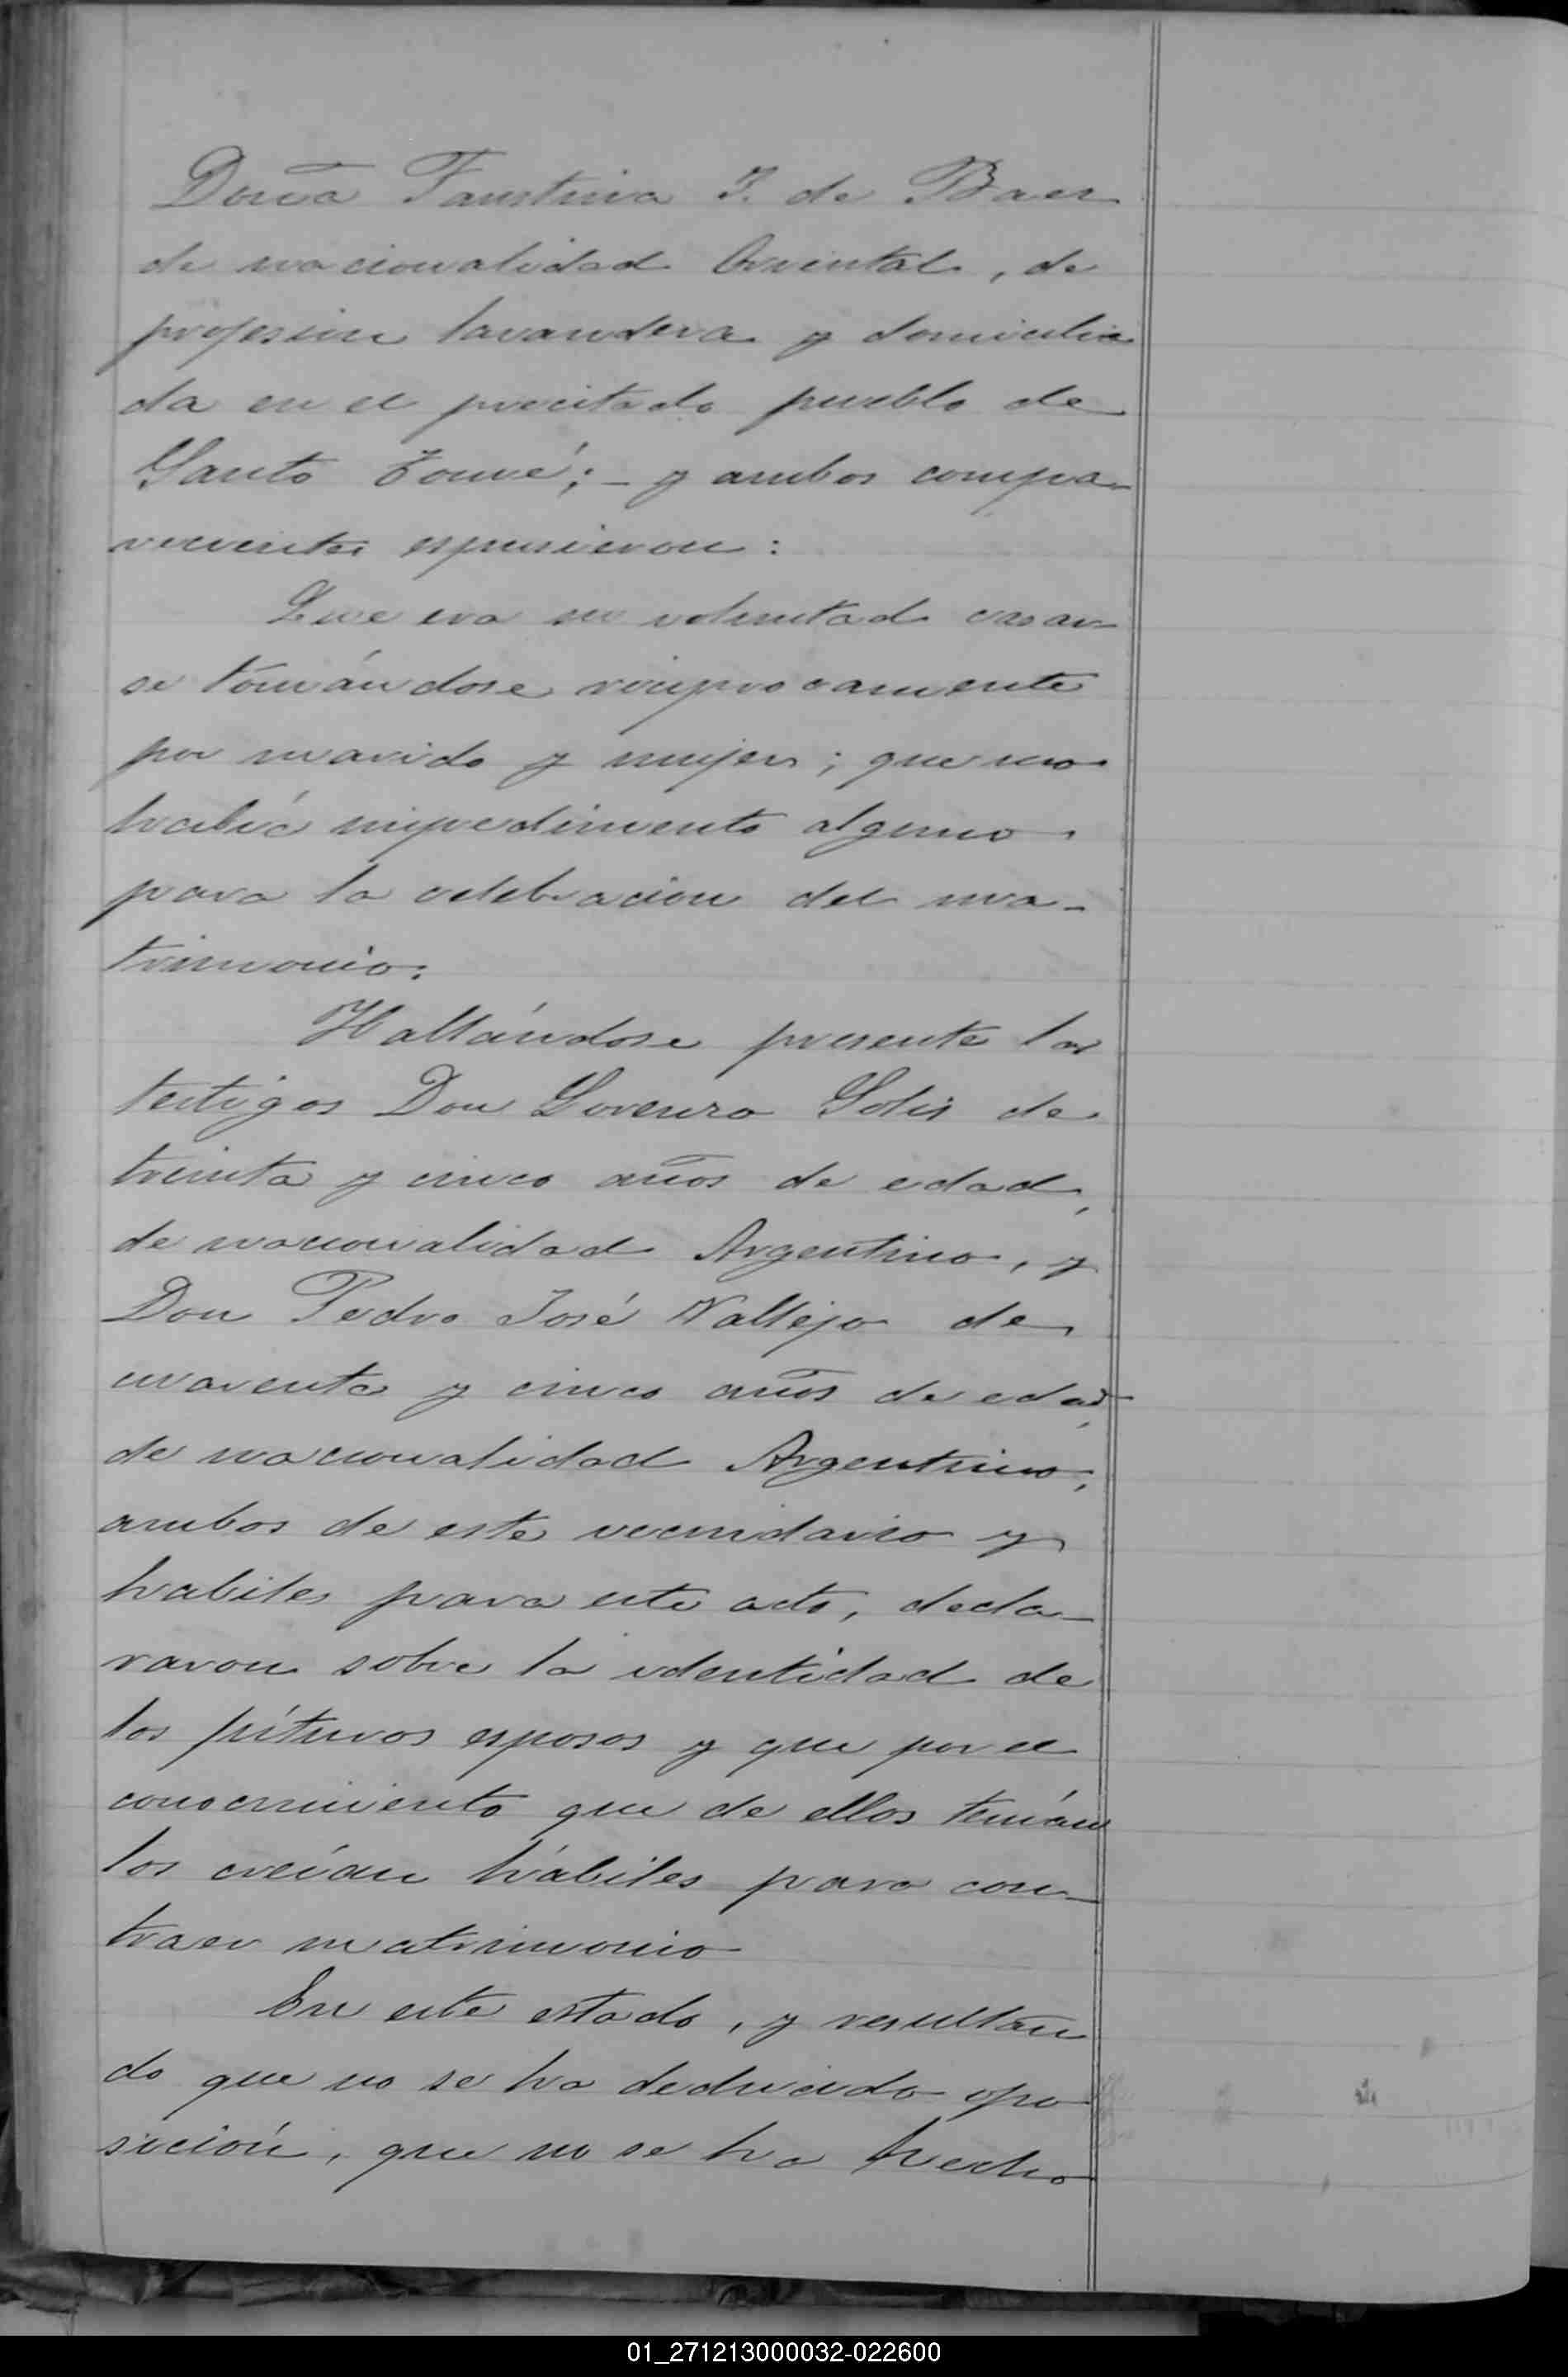 Doña Faustina F. de Baez
de nacionalidad Oriental, de
profesion lavandera y domicilia
da en el precitado pueblo de
Santo Tomé; - y ambos compa-
recientes espusieron:
Que era su voluntad casar-
se tomándose reciprocamente
por marido y mujer; que no
habia impedimento alguno
para la celebracion del ma-
trimonio.
Hallándose presente los
testigos Don Lorenzo Solis de
treinta y cinco años de edad,
de nacionalidad Argentino, y
Don Pedro José Vallejo de
cuarenta y cinco años de edad,
de nacionalidad Argentino,
ambos de este vecindario y
habiles para este acto, decla-
raron sobre la identidad de
los fúturos esposos y que por el
conocimiento que de ellos tenían
los creían hábiles para con-
traer matrimonio
En este estado, y resultan
do que no se ha deducido opo
sición, que no se ha hecho
01_271213000032-022600